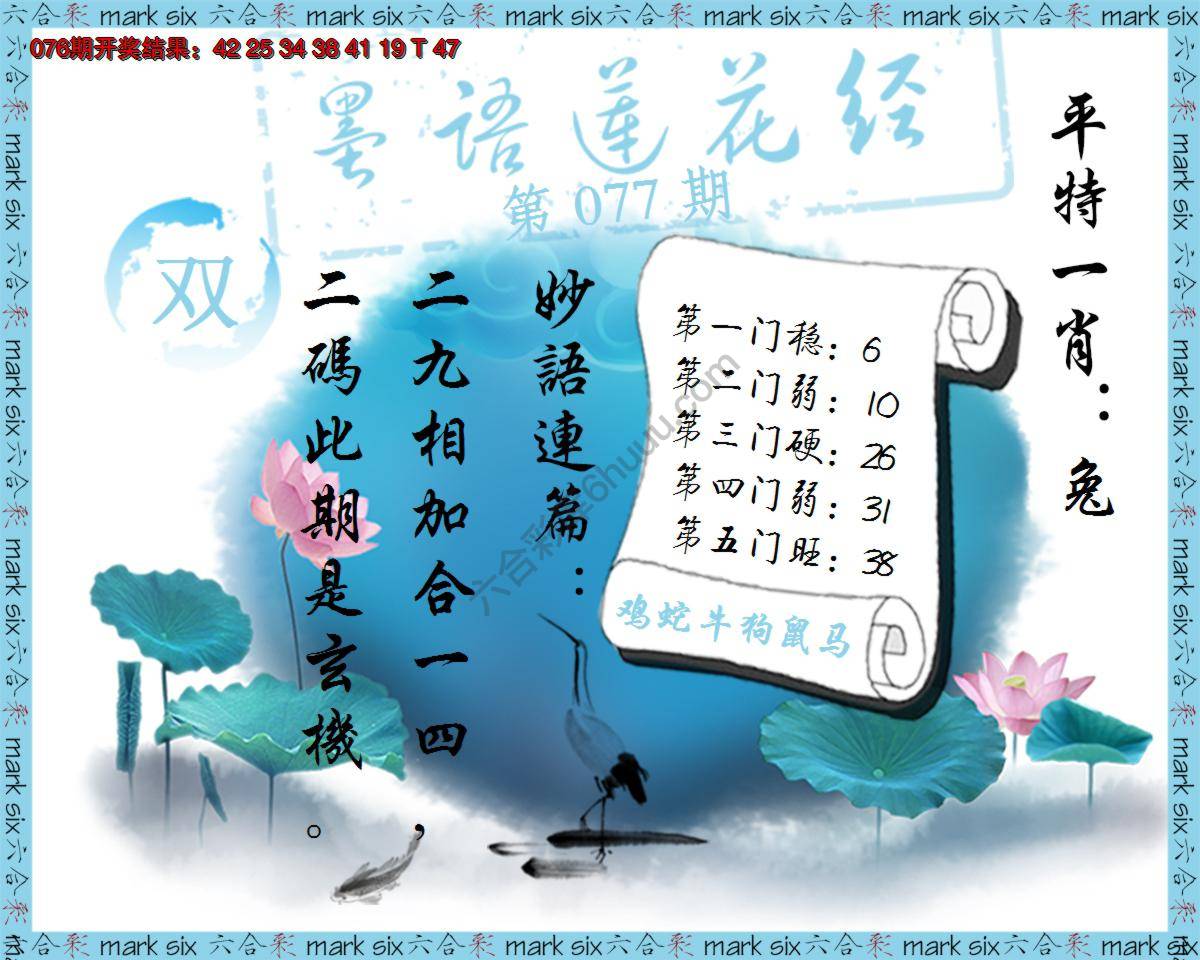 六合彩 mark six 六合彩 mark six 六合彩 mark six 六合彩 mark six 六合彩 mark six 六合彩 mark six
076期开奖结果：42 25 34 38 41 19 T 47
墨语莲花经
第 077 期
双
平特一肖：兔
妙語連篇：
二九相加合一四，
二碼此期是玄機。
第一门稳：6
第二门弱：10
第三门硬：26
第四门弱：31
第五门旺：38
鸡蛇牛狗鼠马
六合彩 mark six 六合彩 mark six 六合彩 mark six 六合彩 mark six 六合彩 mark six 六合彩 mark six